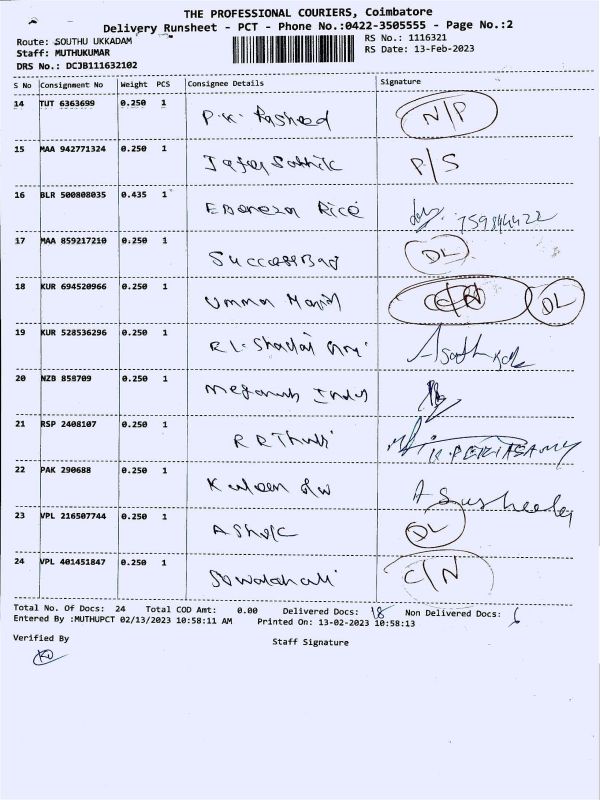 THE PROFESSIONAL COURIERS, Coimbatore
Delivery Runsheet - PCT - Phone No.:0422-3505555 - Page No.:2
Route: SOUTHU UKKADAM
RS No.: 1116321
Staff: MUTHUKUMAR
RS Date: 13-Feb-2023
DRS No.: DCJB111632102
S No Consignment No Weight PCS Consignee Details Signature
14 TUT 6363699 0.250 1
P.K. Rasheed N/P
15 MAA 942771324 0.250 1
Jafar Sathik P/S
16 BLR 500808035 0.435 1
Ebenezer Rice
17 MAA 859217210 0.250 1
Success Bag DL
18 KUR 694520966 0.250 1
Umma Majid DL
19 KUR 528536296 0.250 1
20 NZB 858709 0.250 1
21 RSP 2408107 0.250 1
K.PERIYASAMY
22 PAK 290688 0.250 1
A Susheela
23 VPL 216507744 0.250 1
Ashok DL
24 VPL 401451847 0.250 1
C/N
Total No. Of Docs: 24 Total COD Amt: 0.00 Delivered Docs: 18 Non Delivered Docs: 6
Entered By :MUTHUPCT 02/13/2023 10:58:11 AM Printed On: 13-02-2023 10:58:13
Verified By Staff Signature